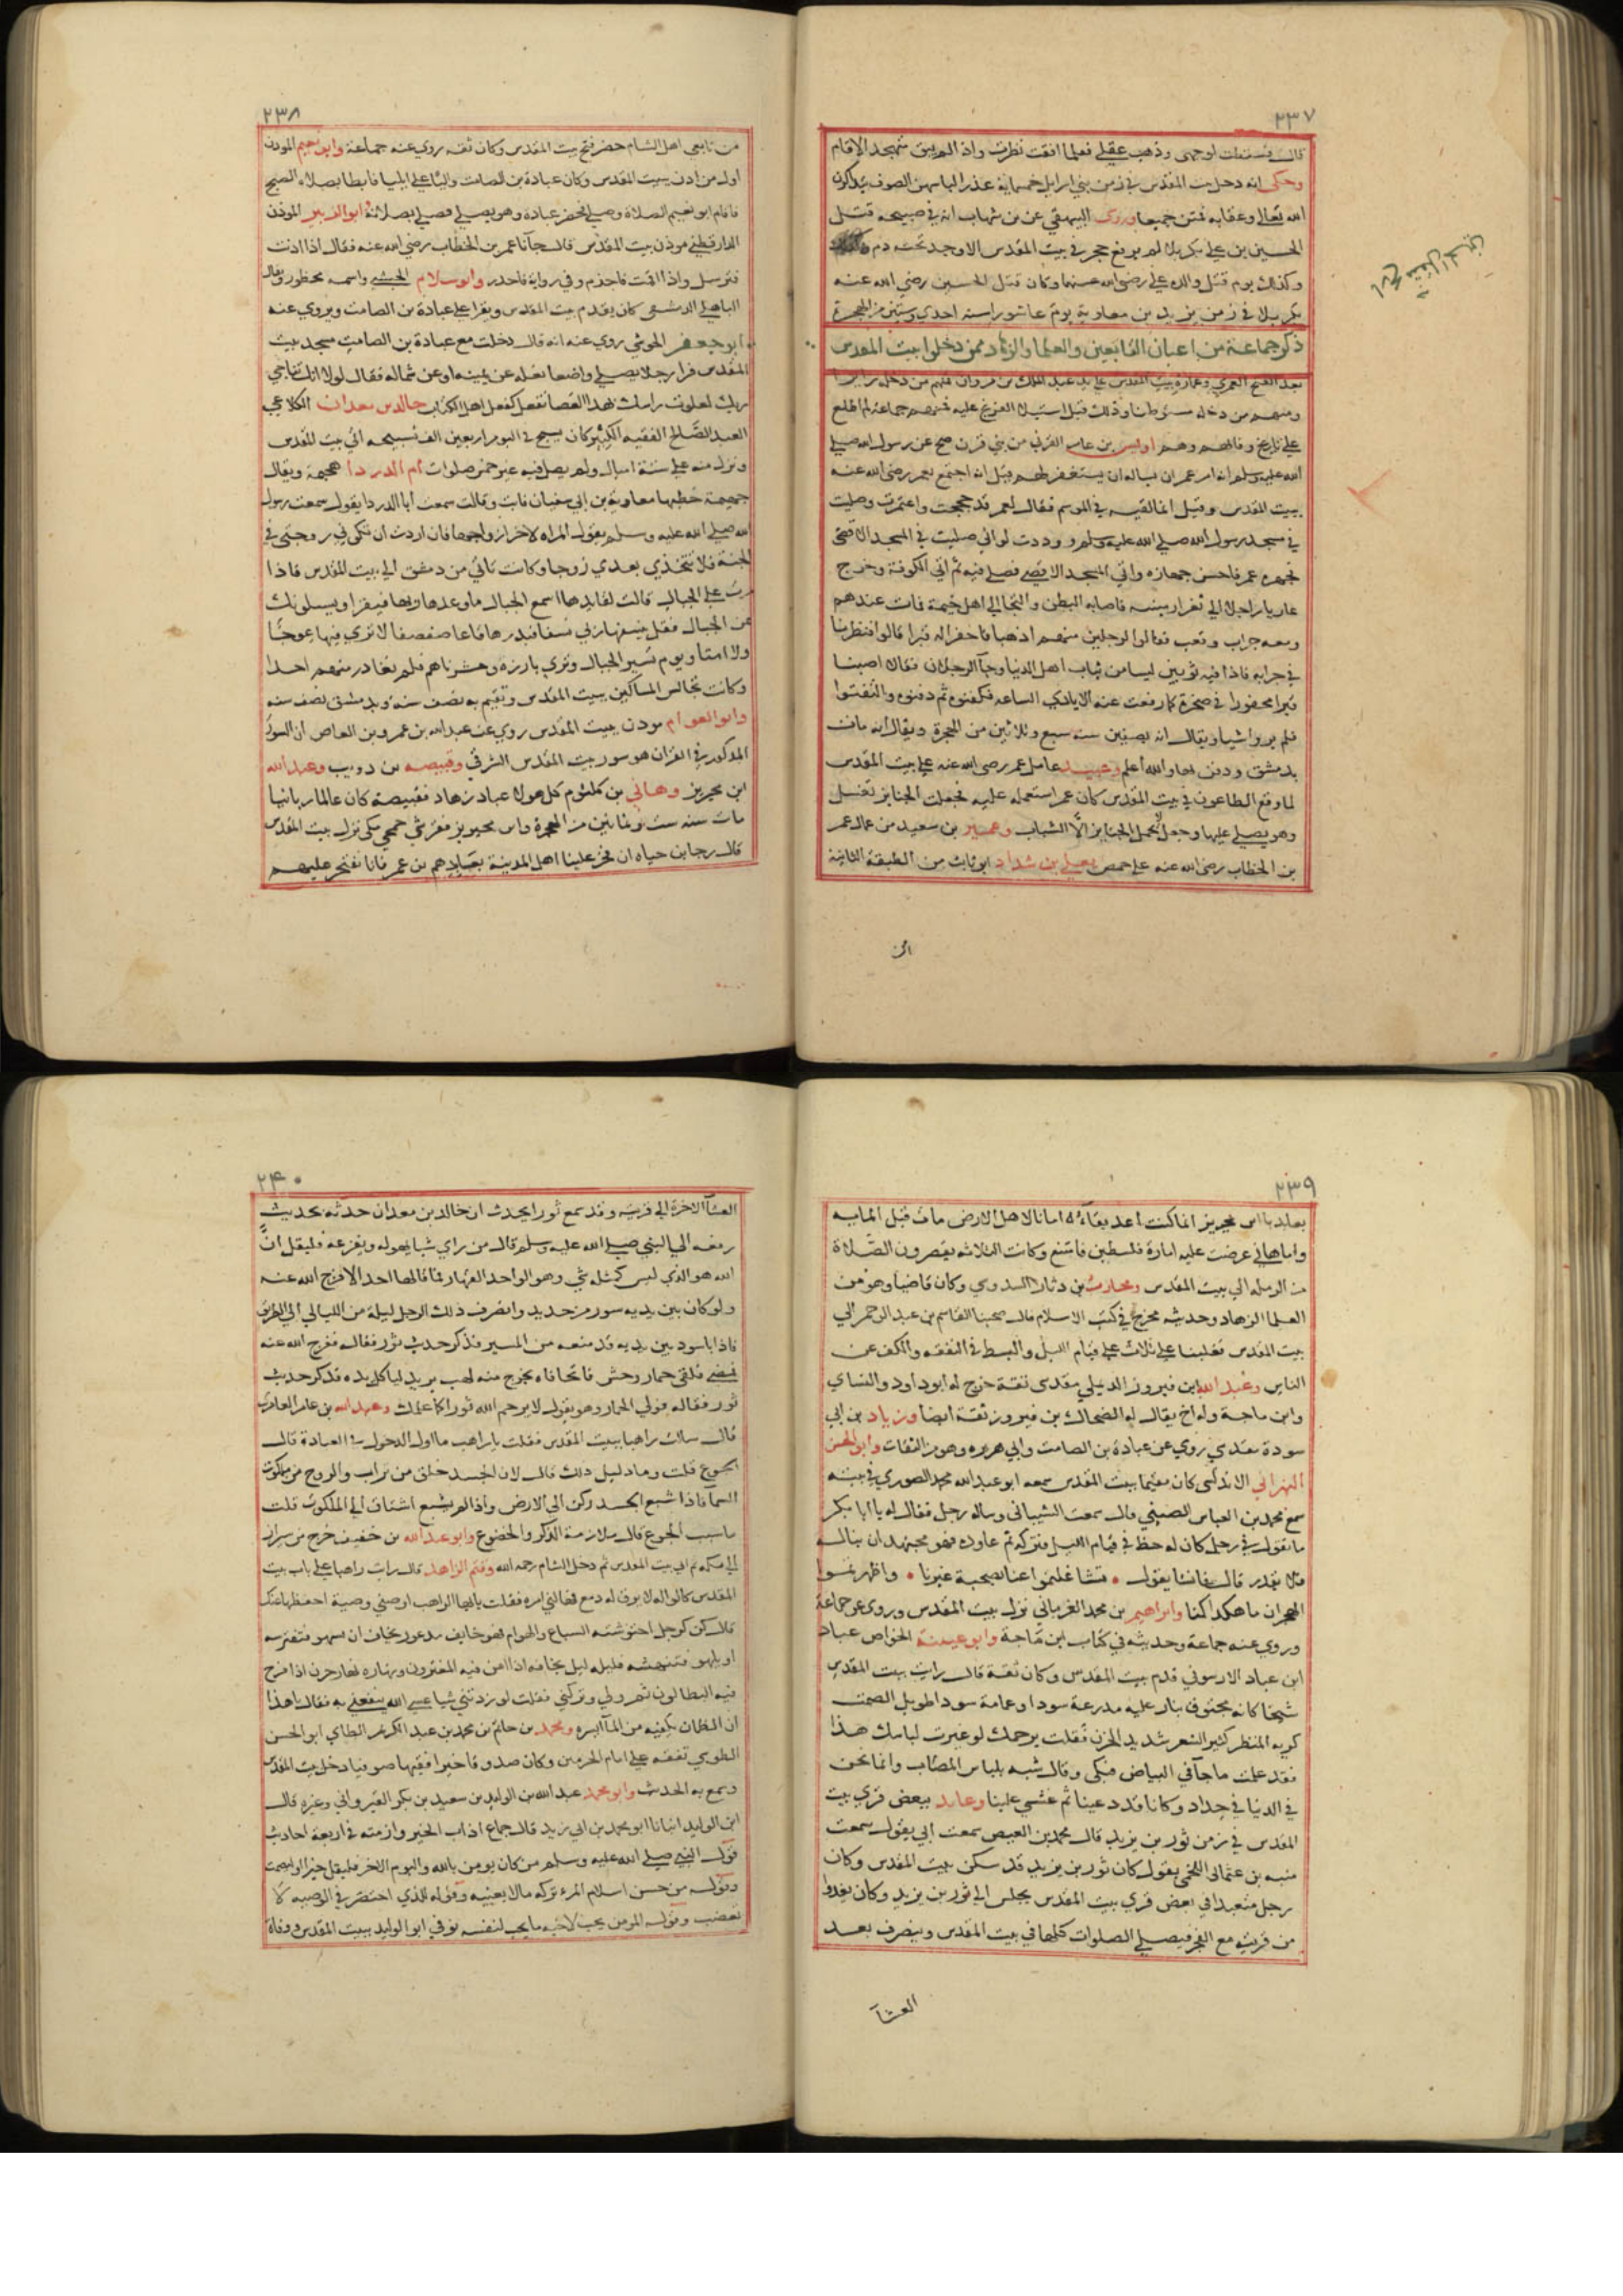 ٢٣٧
وذهب عقلي فعلما افقت نظرت واذا
وحكى انه دخل بيت المقدس في زمن بني اسرايل خمسماية عذرا لباسهن الصوف يتذاكرن
الله تعالى وعقابه فمتن جميعا وروى البيهقي عن بن شهاب انه في صبيحة قتل
الحسين بن علي بكربلا لم يرفع حجر في بيت المقدس الا وجد تحته دم
وكذلك يوم قتل والده علي رضي الله عنهما وكان قتل الحسين رضي الله عنه
بكربلا في زمن يزيد بن معاوية يوم عاشورا سنه احدي وستين من الهجرة
ذكر جماعة من اعيان التابعين والعلما والزهاد ممن دخلوا بيت المقدس
بعد الفتح العمري وعمارة بيت المقدس علي يد عبد الملك بن مروان فمنهم من دخل زايرا
ومنهم من دخله مستوطنا وذلك قبل استيلا الفرنج عليه فمنهم جماعة لم اطلع
علي تاريخ وفاتهم وهم اويس بن عامر القرني من بني قرن صح عن رسول الله صلي
الله عليه وسلم انه امر عمر ان يساله ان يستغفر لهم قيل انه اجتمع بعمر رضي الله عنه
ببيت المقدس وقيل انما لقيه في الموسم فقال لعمر قد حججت واعتمرت وصليت
في مسجد رسول الله صلي الله عليه وسلم ووددت لو اني صليت في المسجد الاقصى
فجهزه عمر فاحسن جهازه واتي المسجد الاقصي فصلي فيه ثم اتي الكوفة وخرج
غازيا راجلا الي ثغر ارمينيه فاصابه البطن والتجا الي اهل خيمة فمات عندهم
ومعه جراب وقعب فقالوا لرجلين منهم اذهبا فاحفرا له قبرا قالوا فنظرنا
في جرابه فاذا فيه ثوبين ليسا من ثياب اهل الدنيا وجآ الرجلان فقالا اصبنا
قبرا محفورا في صخرة كانما رفعت عنه الايادي الساعه فكفنوه ثم دفنوه والتفتوا
فلم يروا شيا ويقال انه بصفين سنه سبع وثلاثين من الهجرة ويقال انه مات
بدمشق ودفن بها والله اعلم وعبيد عامل عمر رضي الله عنه علي بيت المقدس
لما وقع الطاعون في بيت المقدس كان عمر استعمله عليه فجعلت الجنايز تغسل
وهو يصلي عليها وجعل لا يحمل الجنايز الا الشباب وعمير بن سعيد من عمال عمر
بن الخطاب رضي الله عنه علي حمص يعلي بن شداد ابو ثابت من الطبقة الثانية
من
٢٣٨
من تابعي اهل الشام حضر فتح بيت المقدس وكان ثقه روي عنه جماعة وابو نعيم الموذن
اول من اذن ببيت المقدس وكان عبادة بن الصامت واليا علي ايليا فابطا بصلاة الصبح
فاقام ابو نعيم الصلاة وصلي فحضر عبادة وهو يصلي فصلي بصلاته ابو الزبير الموذن
الدارقطني موذن بيت المقدس قال جآنا عمر بن الخطاب رضي الله عنه فقال اذا اذنت
فترسل واذا اقمت فاجذم وفي رواية فاحدر وابو سلام الحبشي واسمه ممطور ويقال
الباهلي الدمشقي كان يقدم بيت المقدس ويقرا علي عبادة بن الصامت ويروي عنه
ابو جعفر الجرشي روي عنه انه قال دخلت مع عبادة بن الصامت مسجد بيت
المقدس فرا رجلا يصلي واضعا نعله عن يمينه او عن شماله فقال لولا انك تناجي
ربك لعلوت راسك بهذه العصا تفعل كفعل اهل الكتاب خالد بن معدان الكلاعي
العبد الصالح الفقيه الكبير كان يسبح في اليوم اربعين الف تسبيحه اتي بيت المقدس
ونزل منه علي ستة اميال ولم يصل فيه غير خمس صلوات ام الدردا هجيمة ويقال
جهيمة خطبها معاوية بن ابي سفيان فابت وقالت سمعت ابا الدردا يقول سمعت رسول
الله صلي الله عليه وسلم يقول المراه لاخر ازواجها فان اردت ان تكوني زوجتي في
الجنة فلا تتخذي بعدي زوجا وكانت تاتي من دمشق الي بيت المقدس فاذا
مرت علي الجبال قالت لقايدها اسمع الجبال ما وعدها ربها فيقرا ويسيلونك
عن الجبال فقل ينسفها ربي نسفا فيذرها قاعا صفصفا لا تري فيها عوجا
ولا امتا ويوم نسير الجبال وتري بارزه وحشرناهم فلم نغادر منهم احدا
وكانت تجالس المساكين ببيت المقدس وتقيم به نصف سنه وبدمشق نصف سنه
وابو العوام موذن بيت المقدس روي عن عبد الله بن عمرو بن العاص ان السور
المذكور في القران هو سور بيت المقدس الشرقي وقبيصه بن ذويب وعبد الله
ابن محيريز وهاني بن كلثوم كل هولا عباد زهاد فقبيصة كان عالما ربانيا
مات سنه ست وثمانين من الهجرة وابن محيريز قرشي جمحي مكي نزل بيت المقدس
قال رجا بن حياه ان فخر علينا اهل المدينة بعابدهم بن عمر فانا نفتخر عليهم
٢٣٩
بعابدنا ابن محيريز انما كنت اعد بقآءه امانا لاهل الارض مات قبل المايه
واما هاني عرضت عليه امارة فلسطين فامتنع وكانت الثلاثه يقصرون الصلاة
من الرمله الي بيت المقدس ومحارب بن دثار السدوسي وكان قاضيا وهو من
العلما الزهاد وحديثه مخرج في كتب الاسلام قال صحبنا القاسم بن عبد الرحمن الي
بيت المقدس فغلبنا علي ثلاث علي قيام الليل والبسط في النفقه والكف عن
الناس وعبد الله ابن فيروز الديلمي مقدسي ثقة خرج له ابو داود والنساي
وابن ماجة وله اخ يقال له الضحاك بن فيروز ثقة ايضا وزياد بن ابي
سودة مقدسي روي عن عبادة بن الصامت وابي هريره وهو من الثقات وابو الحسن
الاندلسي كان مقيما ببيت المقدس سمعه ابو عبد الله محمد الصوري في بيته
سمع محمد بن العباس الضبي قال سمعت الشيباني وساله رجل فقال له يا ابا بكر
ما تقول في رجل كان له حظ في قيام الليل فتركه ثم عاوده فهو مجتهد ان يناله
فلا يقدر قال فانشا يقول • تشاغلتموا عنا بصحبة غيرنا • واظهرتموا
الهجران ما هكذا كنا وابراهيم بن محمد الفريابي نزل بيت المقدس وروي عن جماعة
وروي عنه جماعة وحديثه في كتاب ابن ماجة وابو عيينة الخواص عباد
ابن عباد الارسوفي قدم بيت المقدس وكان ثقة قال رايت بيت المقدس
شيخا كانه محترق بنار عليه مدرعة سودا وعمامة سودا طويل الصمت
كريه المنظر كثير الشعر شديد الحزن فقلت يرحمك لو غيرت لباسك هذا
فقد علمت ما جآ في البياض فبكى وقال شبه بلباس المصاب وانما نحن
في الدنيا في حداد وكانا قد دعينا ثم غشي علينا وعابد ببعض قري بيت
المقدس في زمن ثور بن يزيد قال محمد بن العيص سمعت ابي يقول سمعت
منبه بن عثمان اللخمي يقول كان ثور بن يزيد قد سكن بيت المقدس وكان
رجل متعبدا في بعض قري بيت المقدس يجلس الي ثور بن يزيد وكان يغدوا
من قريته مع الفجر فيصلي الصلوات كلها في بيت المقدس وينصرف بعد
العشآ
٢٤٠
العشآ الاخرة الي قريته وقد سمع ثورا يحدث ان خالد بن معدان حدثه بحديث
رفعه الي النبي صلي الله عليه وسلم قال من راي شيا يهوله ويفزعه فليقل ان
الله هو الذي ليس كمثله شي وهو الواحد القهار فما قالها احد الا فرج الله عنه
ولو كان بين يديه سور من حديد وانصرف ذلك الرجل ليلة من الليالي الي الطريق
فاذا باسود بين يديه قد منعه من المسير فذكر حديث ثور فقاله ففرج الله عنه
فمضي فلقي حمار وحش فاتحا فاه يخرج منه لهب يريد لياكل يده فذكر حديث
ثور فقاله فولي الحمار وهو يقول لا يرحم الله ثورا كما علمك وعبد الله بن عامر العامري
قال سالت راهبا ببيت المقدس فقلت يا راهب ما اول الدخول في العبادة قال
الجوع قلت وما دليل ذلك قال لان الجسد خلق من تراب والروح من ملكوت
السمآ فاذا شبع الجسد ركن الي الارض واذا لم يشبع اشتاق الي الملكوت قلت
ما سبب الجوع قال ملازمة الذكر والخضوع وابو عبد الله بن خفيف خرج من شيراز
الي مكه ثم اتي بيت المقدس ثم دخل الشام رحمه الله وقثم الزاهد قال رايت راهبا علي باب بيت
المقدس كالواله لا يرقي له دمع فهالني امره فقلت يا ايها الراهب اوصني وصية احفظها عنك
قال كن كرجل احتوشته السباع والهوام فهو خايف مذعور يخاف ان يسهو فتفترسه
او يلهو فتنهشه فليله ليل مخافه اذا امن فيه المغترون ونهاره نهار حزن اذا فرح
فيه البطالون ثم ولي وتركني فقلت لو زدتني شيا عسي الله ينفعني به فقال يا هذا
ان الظمان يكفيه من المآ ايسره ومحمد بن حاتم بن محمد بن عبد الكريم الطاي ابو الحسن
الطوسي تفقه علي امام الحرمين وكان صدوقا خيرا فقيها صوفيا دخل بيت المقدس
وسمع به الحديث وابو محمد عبد الله بن الوليد بن سعيد بن بكر القيرواني وغيره قال
ابن الوليد انبانا ابو محمد بن ابي زيد قال جماع اداب الخير وازمته في اربعة احاديث
قول النبي صلي الله عليه وسلم من كان يومن بالله واليوم الاخر فليقل خيرا او ليصمت
وقوله من حسن اسلام المرء تركه ما لا يعنيه وقوله للذي اختصر في الوصيه لا
تغضب وقوله المومن يحب لاخيه ما يحب لنفسه توفي ابو الوليد ببيت المقدس ووفاة